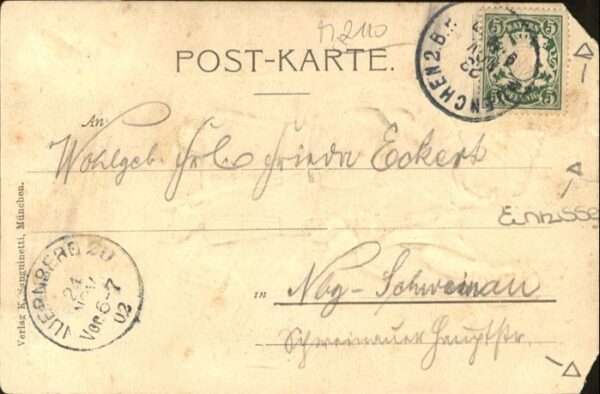 POST-KARTE.
BAYERN
5 5
5 5
MUENCHEN 2.B.P.
An
Wohlgeb. Frl. Frieda Eckert
in Nbg-Schweinau
Schweinauer Hauptstr.
NUERNBERG 20
24
NOV
Vor. 6-7
02
Verlag K. Sanguinetti, München.